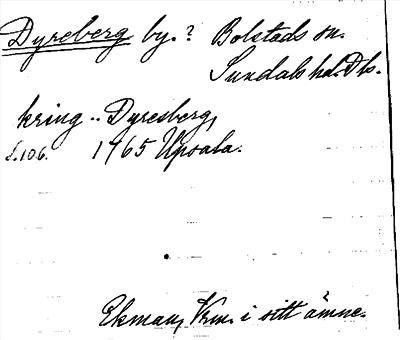 Dyreberg by.? Bolstads sn.
Sundals hd. Dls.
kring .. Dyresberg,
s.106. 1765 Upsala.
Ekman, Vrm. i sitt ämne.